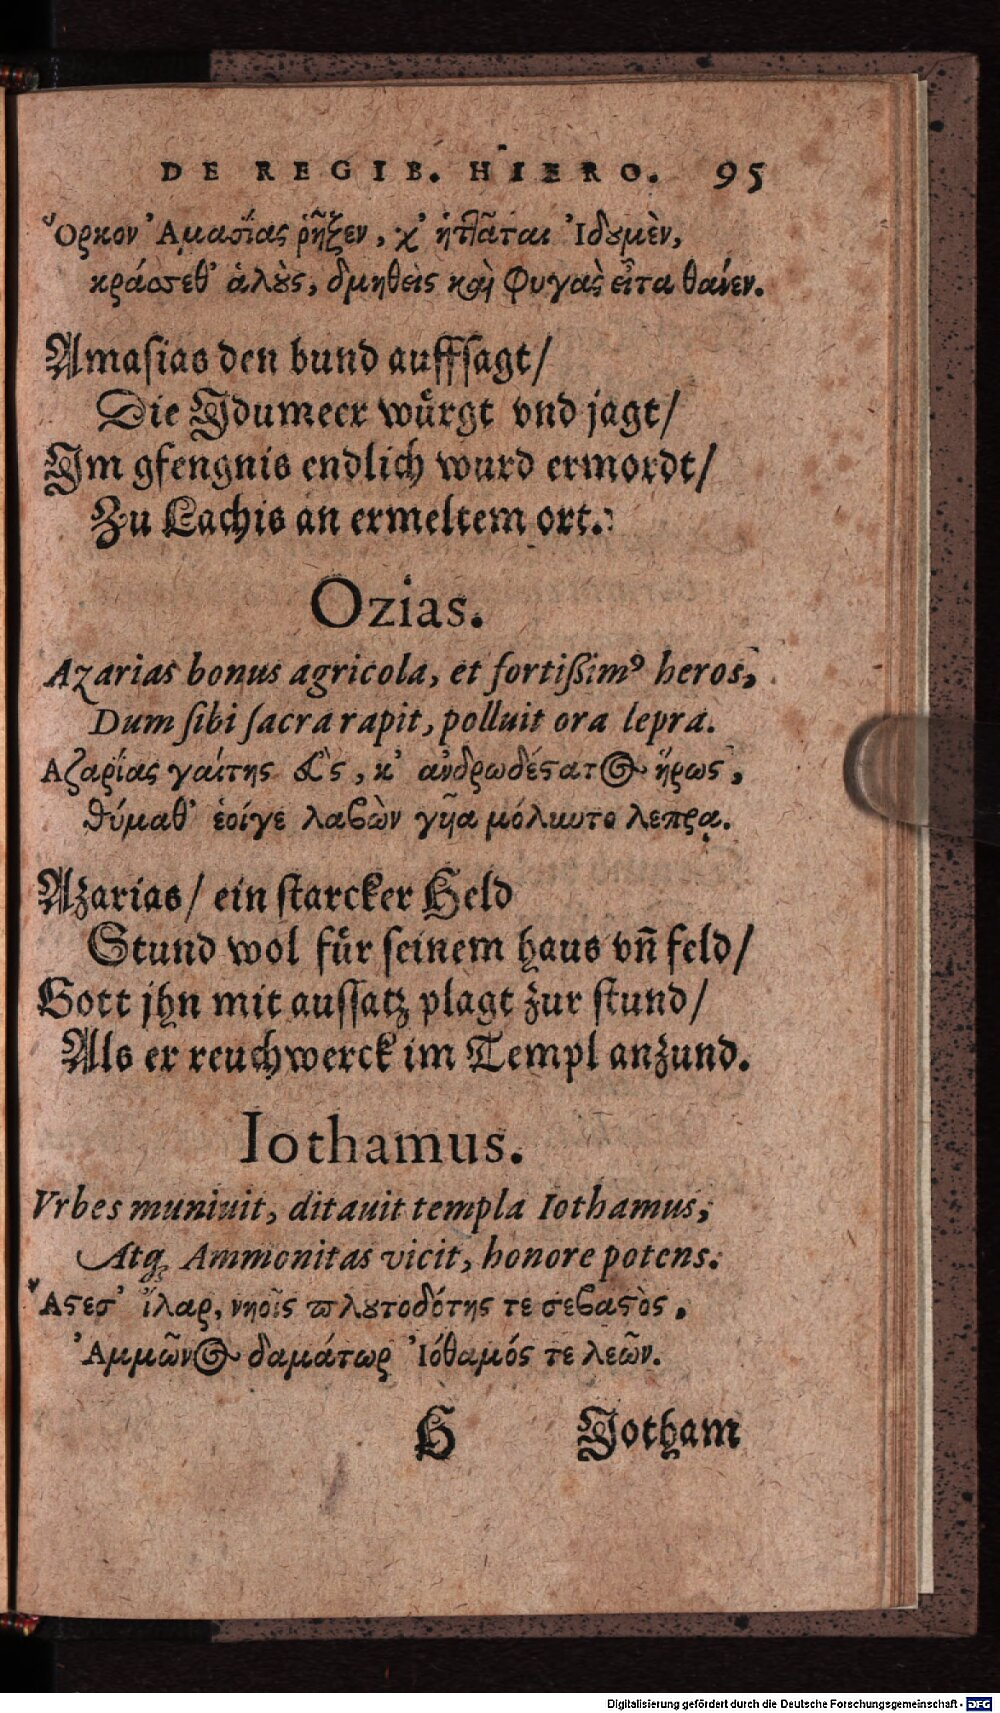 DE REGIB. HIERO. 95
Ὅρκον Ἀμασίας ῥῆξεν, χ' ἡττᾶται Ἰδουμὲν,
κράστεθ' ἁλοὺς, δμηθεὶς καὶ φυγὰς εἶτα θάνεν.
Amaſias den bund auffſagt/
Die Jdumeer wuͤrgt vnd jagt/
Jm gfengnis endlich wurd ermordt/
Zu Lachis an ermeltem ort.
Ozias.
Azarias bonus agricola, et fortißimꝰ heros,
Dum ſibi ſacra rapit, polluit ora lepra.
Αζαρίας γαίτης , κ' ἀνδρωδέϛατος ἥρως,
θύμαθ' ἑοῖγε λαβὼν γυῖα μόλυιυτο λεπρᾳ.
Azarias/ ein ſtarcker Held
Stund wol fuͤr ſeinem haus vñ feld/
Gott jhn mit auſſatz plagt zur ſtund/
Als er reuchwerck im Templ anzund.
Iothamus.
Vrbes muniuit, ditauit templa Iothamus,
Atq; Ammonitas vicit, honore potens.
Ἄϛεσ' ἵλαρ, νηοῖς πλουτοδότης τε σεβαϛὸς.
Ἀμμῶνος δαμάτωρ Ἰόθαμός τε λεῶν.
H Jotham
Digitalisierung gefördert durch die Deutsche Forschungsgemeinschaft - DFG